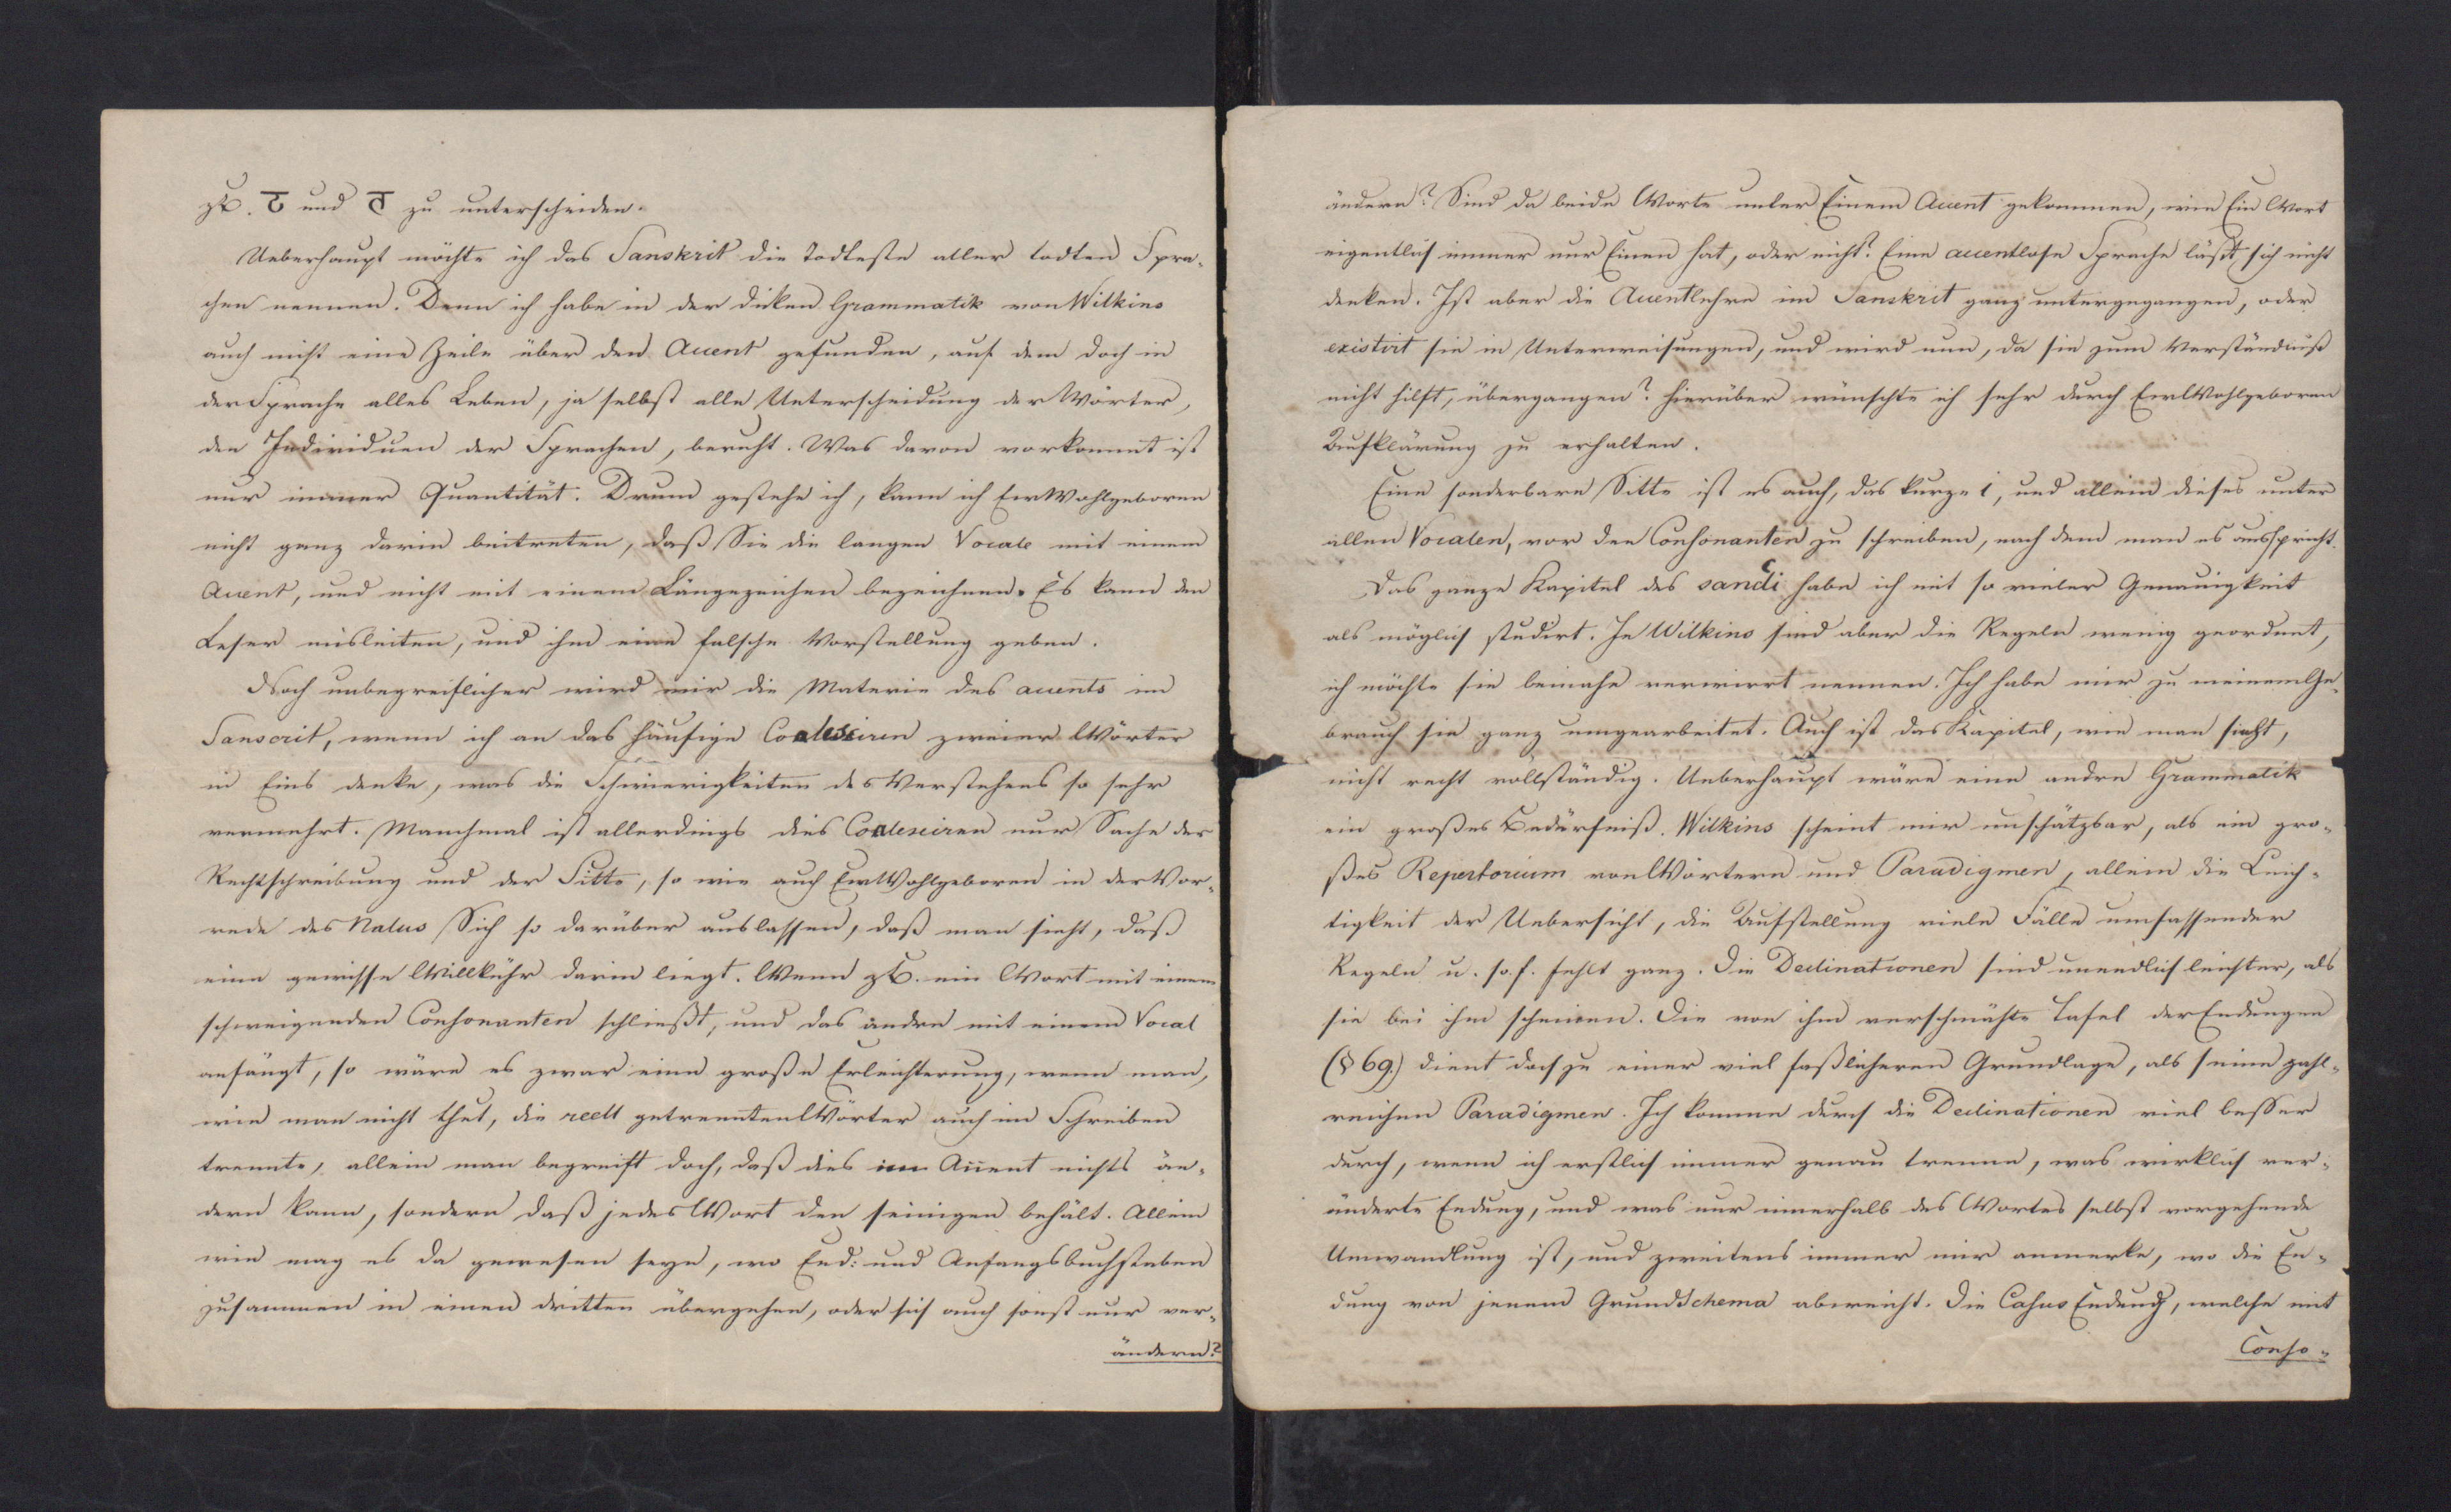 zB. ट und द zu unterscheiden.
Ueberhaupt möchte ich das Sanskrit die todteste aller todten Spra-
chen nennen. Denn ich habe in der dicken Grammatik von Wilkins
auch nicht eine Zeile über den Accent gefunden, auf dem doch in
der Sprache alles Leben, ja selbst alle Unterscheidung der Wörter,
den Individuen der Sprachen, beruht. Was davon vorkommt ist
nur immer Quantität. Drum gestehe ich, kann ich Ew Wohlgeboren
nicht ganz darin beitreten, daß Sie die langen Vocale mit einem
Accent, und nicht mit einem Längezeichen bezeichnen. Es kann den
Leser misleiten, und ihm eine falsche Vorstellung geben.
Noch unbegreiflicher wird mir die Materie des accents im
Sanscrit, wenn ich an das häufige Coalesciren zweier Wörter
in Eins denke, was die Schwierigkeiten des Verstehens so sehr
vermehrt. Manchmal ist allerdings dies Coalesciren nur Sache der
Rechtschreibung und der Sitte, so wie auch Ew Wohlgeboren in der Vor-
rede des Nalus Sich so darüber auslassen, daß man sieht, daß
eine gewisse Willkühr darin liegt. Wenn zB. ein Wort mit einem
schweigenden Consonanten schließt, und das andre mit einem Vocal
anfängt, so wäre es zwar eine große Erleichterung, wenn man,
wie man nicht thut, die reell getrennten Wörter auch im Schreiben
trennte, allein man begreift doch, daß dies im Accent nichts än-
dern kann, sondern daß jedes Wort den seinigen behält. Allein
wie mag es da gewesen seyn, wo End- und Anfangsbuchstaben
zusammen in einen dritten übergehen, oder sich auch sonst nur ver-
ändern?
ändern? Sind da beide Worte unter Einem Accent gekommen, wie Ein Wort
eigentlich immer nur Einen hat, oder nicht? Eine accentlose Sprache läßt sich nicht
denken. Ist aber die Accentlehre im Sanskrit ganz untergegangen, oder
existirt sie in Unterweisungen, und wird nun, da sie zum Verständniß
nicht hilft, übergangen? Hierüber wünschte ich sehr durch Ew Wohlgeboren
Aufklärung zu erhalten.
Eine sonderbare Sitte ist es auch, das kurze i, und allein dieses unter
allen Vocalen, vor den Consonanten zu schreiben, nach dem man es ausspricht.
Das ganze Kapitel des sandi habe ich mit so vieler Genauigkeit
als möglich studirt. In Wilkins sind aber die Regeln wenig geordnet,
ich möchte sie beinahe verwirrt nennen. Ich habe mir zu meinem Ge-
brauch sie ganz umgearbeitet. Auch ist das Kapitel, wie man sieht,
nicht recht vollständig. Ueberhaupt wäre eine andre Grammatik
ein großes Bedürfniß. Wilkins scheint mir unschätzbar, als ein gro-
ßes Repertorium von Wörtern und Paradigmen, allein die Leich-
tigkeit der Uebersicht, die Aufstellung viele Fälle umfassender
Regeln u. s. f. fehlt ganz. Die Declinationen sind unendlich leichter, als
sie bei ihm scheinen. Die von ihm verschmähte Tafel der Endungen
(§ 69.) dient doch zu einer viel faßlicheren Grundlage, als seine zahl-
reichen Paradigmen. Ich komme durch die Declinationen viel besser
durch, wenn ich erstlich immer genau trenne, was wirklich ver-
änderte Endung, und was nur innerhalb des Wortes selbst vorgehende
Umwandlung ist, und zweitens immer mir anmerke, wo die En-
dung von jenem Grundschema abweicht. Die Casus Endung, welche mit
Conso-